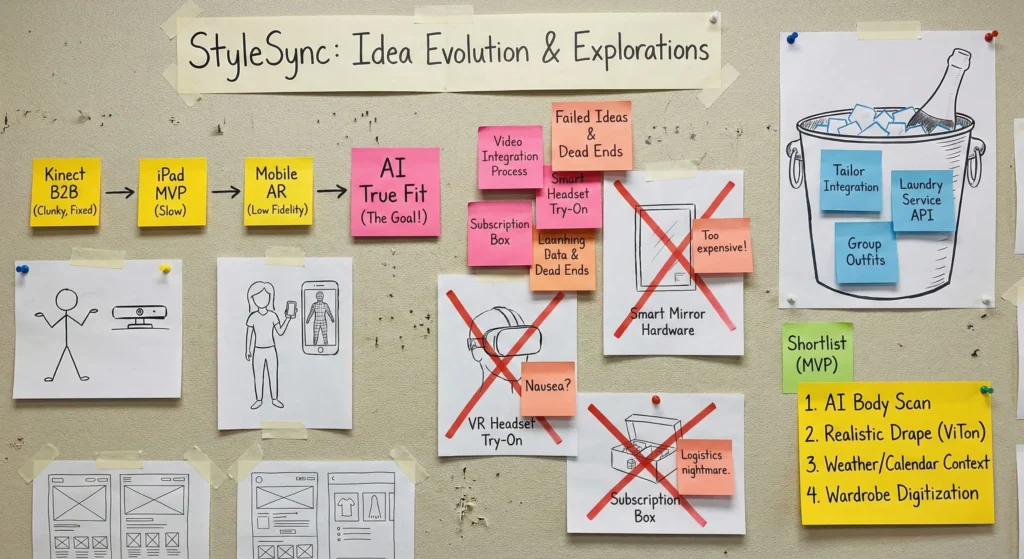 StyleSync: Idea Evolution & Explorations
Kinect
B2B
(Clunky, Fixed)
iPad
MVP
(Slow)
Mobile
AR
(Low Fidelity)
AI
True Fit
(The Goal!)
Video
Integration
Process
Failed Ideas
&
Dead Ends
Smart
Headset
Try-On
Subscription
Box
Data &
Dead Ends
Too
expensive!
Smart Mirror
Hardware
Nausea?
VR Headset
Try-On
Logistics
nightmare.
Subscription
Box
Tailor
Integration
Laundry
Service
API
Group
Outfits
Shortlist
(MVP)
1. AI Body Scan
2. Realistic Drape (ViTon)
3. Weather/Calendar Context
4. Wardrobe Digitization